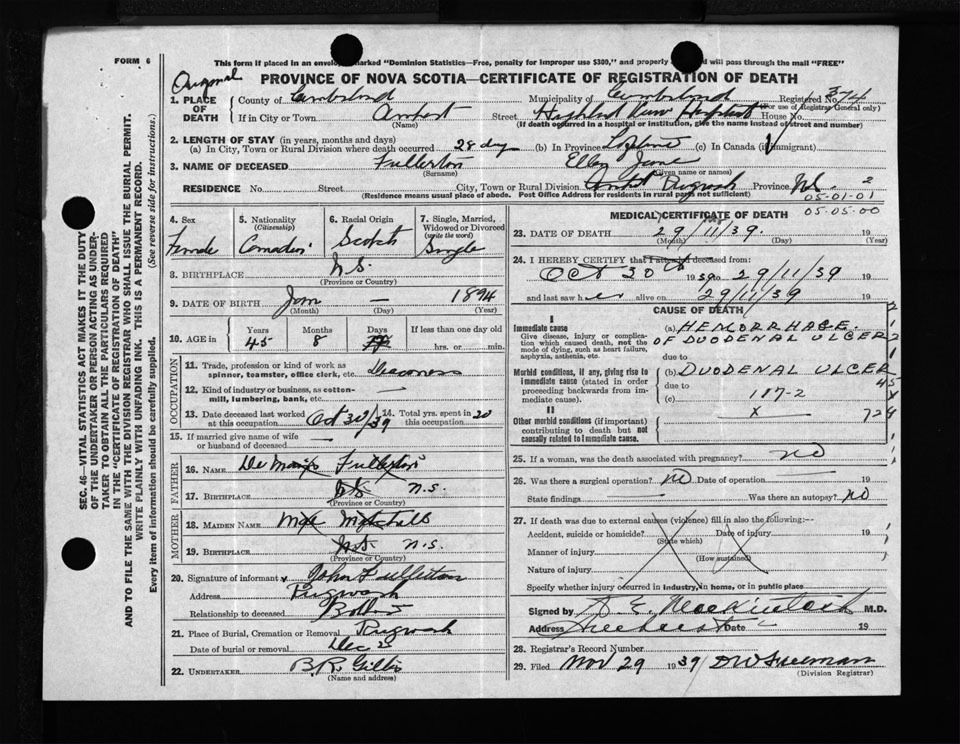 FORM 6
This form if placed in an envelope marked "Dominion Statistics—Free, penalty for improper use $300," and properly will pass through the mail "FREE"
Original
PROVINCE OF NOVA SCOTIA—CERTIFICATE OF REGISTRATION OF DEATH
1. PLACE OF DEATH County of Cumberland Municipality of Cumberland Registered No. 374
(For use of Registrar General only)
If in City or Town Amherst Street Highland View Hospital House No.
(Name) (If death occurred in a hospital or institution, give the name instead of street and number)
2. LENGTH OF STAY (in years, months and days)
(a) In City, Town or Rural Division where death occurred 28 days (b) In Province Lifetime (c) In Canada (if immigrant)
3. NAME OF DECEASED Fullerton Ellen Jane
(Surname) (Given name or names)
RESIDENCE No. Street City, Town or Rural Division Amherst Pugwash Province N.S. 2
(Residence means usual place of abode. Post Office Address for residents in rural parts not sufficient) 05-01-01
05-05-00
4. Sex Female
5. Nationality (Citizenship) Canadian
6. Racial Origin Scotch
7. Single, Married, Widowed or Divorced (write the word) Single
8. BIRTHPLACE N.S.
(Province or Country)
9. DATE OF BIRTH Jan — 1894
(Month) (Day) (Year)
10. AGE in Years Months Days If less than one day old
45 8 hrs. or min.
OCCUPATION
11. Trade, profession or kind of work as spinner, teamster, office clerk, etc. Deaconess
12. Kind of industry or business, as cotton-mill, lumbering, bank, etc.
13. Date deceased last worked at this occupation Oct 30/39 14. Total yrs. spent in this occupation. 20
15. If married give name of wife or husband of deceased —
FATHER
16. NAME Fullerton
17. BIRTHPLACE N.S. N.S.
(Province or Country)
MOTHER
18. MAIDEN NAME Mitchell
19. BIRTHPLACE N.S. N.S.
(Province or Country)
20. Signature of informant John Fullerton
Address Pugwash
Relationship to deceased Brother
21. Place of Burial, Cremation or Removal Pugwash
Date of burial or removal Dec
22. UNDERTAKER B.R. Gillis
(Name and address)
MEDICAL CERTIFICATE OF DEATH
23. DATE OF DEATH 29/11/39. 19
(Month) (Day) (Year)
24. I HEREBY CERTIFY that I attended deceased from:
Oct 30th 1939 to 29/11/39 19
and last saw her alive on 29/11/39 19
CAUSE OF DEATH
I
Immediate cause
Give disease, injury, or complication which caused death, not the mode of dying, such as heart failure, asphyxia, asthenia, etc.
(a) HEMORRHAGE OF DUODENAL ULCER
due to
Morbid conditions, if any, giving rise to immediate cause (stated in order proceeding backwards from immediate cause).
(b) DUODENAL ULCER
due to
(c) 117-2
II
Other morbid conditions (if important) contributing to death but not causally related to immediate cause.
x 724
25. If a woman, was the death associated with pregnancy? NO
26. Was there a surgical operation? NO Date of operation 19
State findings Was there an autopsy? NO
27. If death was due to external causes (violence) fill in also the following:—
Accident, suicide or homicide? Date of injury 19
(State which)
Manner of injury
(How sustained)
Nature of injury
Specify whether injury occurred in industry, in home, or in public place
Signed by E. MacKintosh M.D.
Address Amherst Date 19
28. Registrar's Record Number
29. Filed Nov 29 1939 DW Freeman
(Division Registrar)
SEC. 46—VITAL STATISTICS ACT MAKES IT THE DUTY
OF THE UNDERTAKER OR PERSON ACTING AS UNDERTAKER TO OBTAIN ALL THE PARTICULARS REQUIRED
IN THE "CERTIFICATE OF REGISTRATION OF DEATH"
AND TO FILE THE SAME WITH THE DIVISION REGISTRAR WHO SHALL ISSUE THE BURIAL PERMIT.
WRITE PLAINLY WITH UNFADING INK. THIS IS A PERMANENT RECORD.
Every item of information should be carefully supplied. (See reverse side for instructions.)